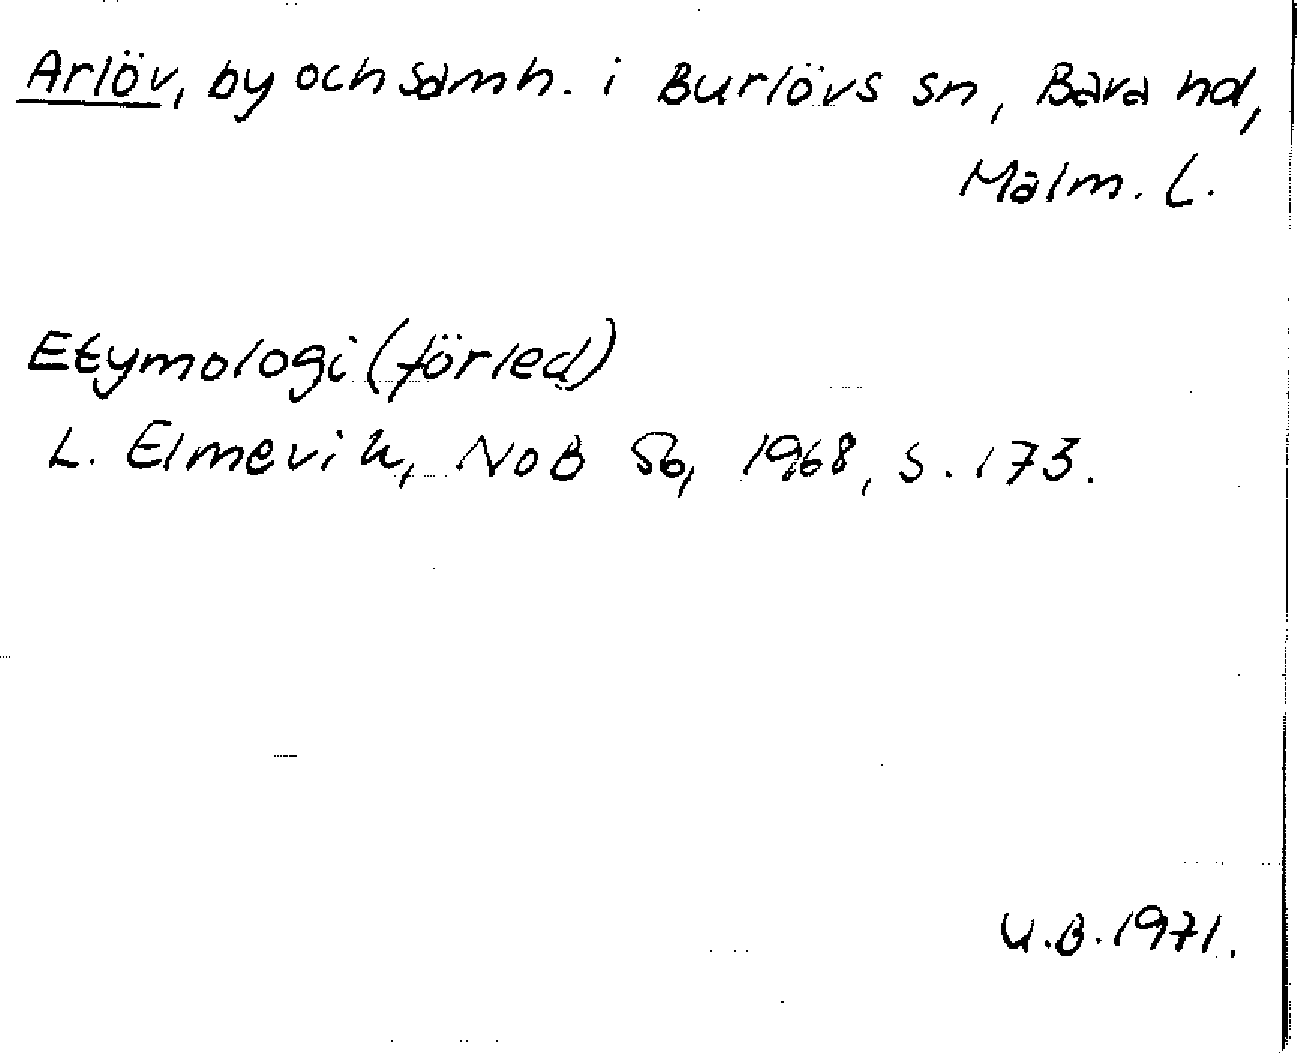 Arlöv, by och samh. i Burlövs sn, Bara hd,
Malm. l.
Etymologi (förled)
L. Elmevik, NoB 56, 1968, s. 173.
U.B. 1971.